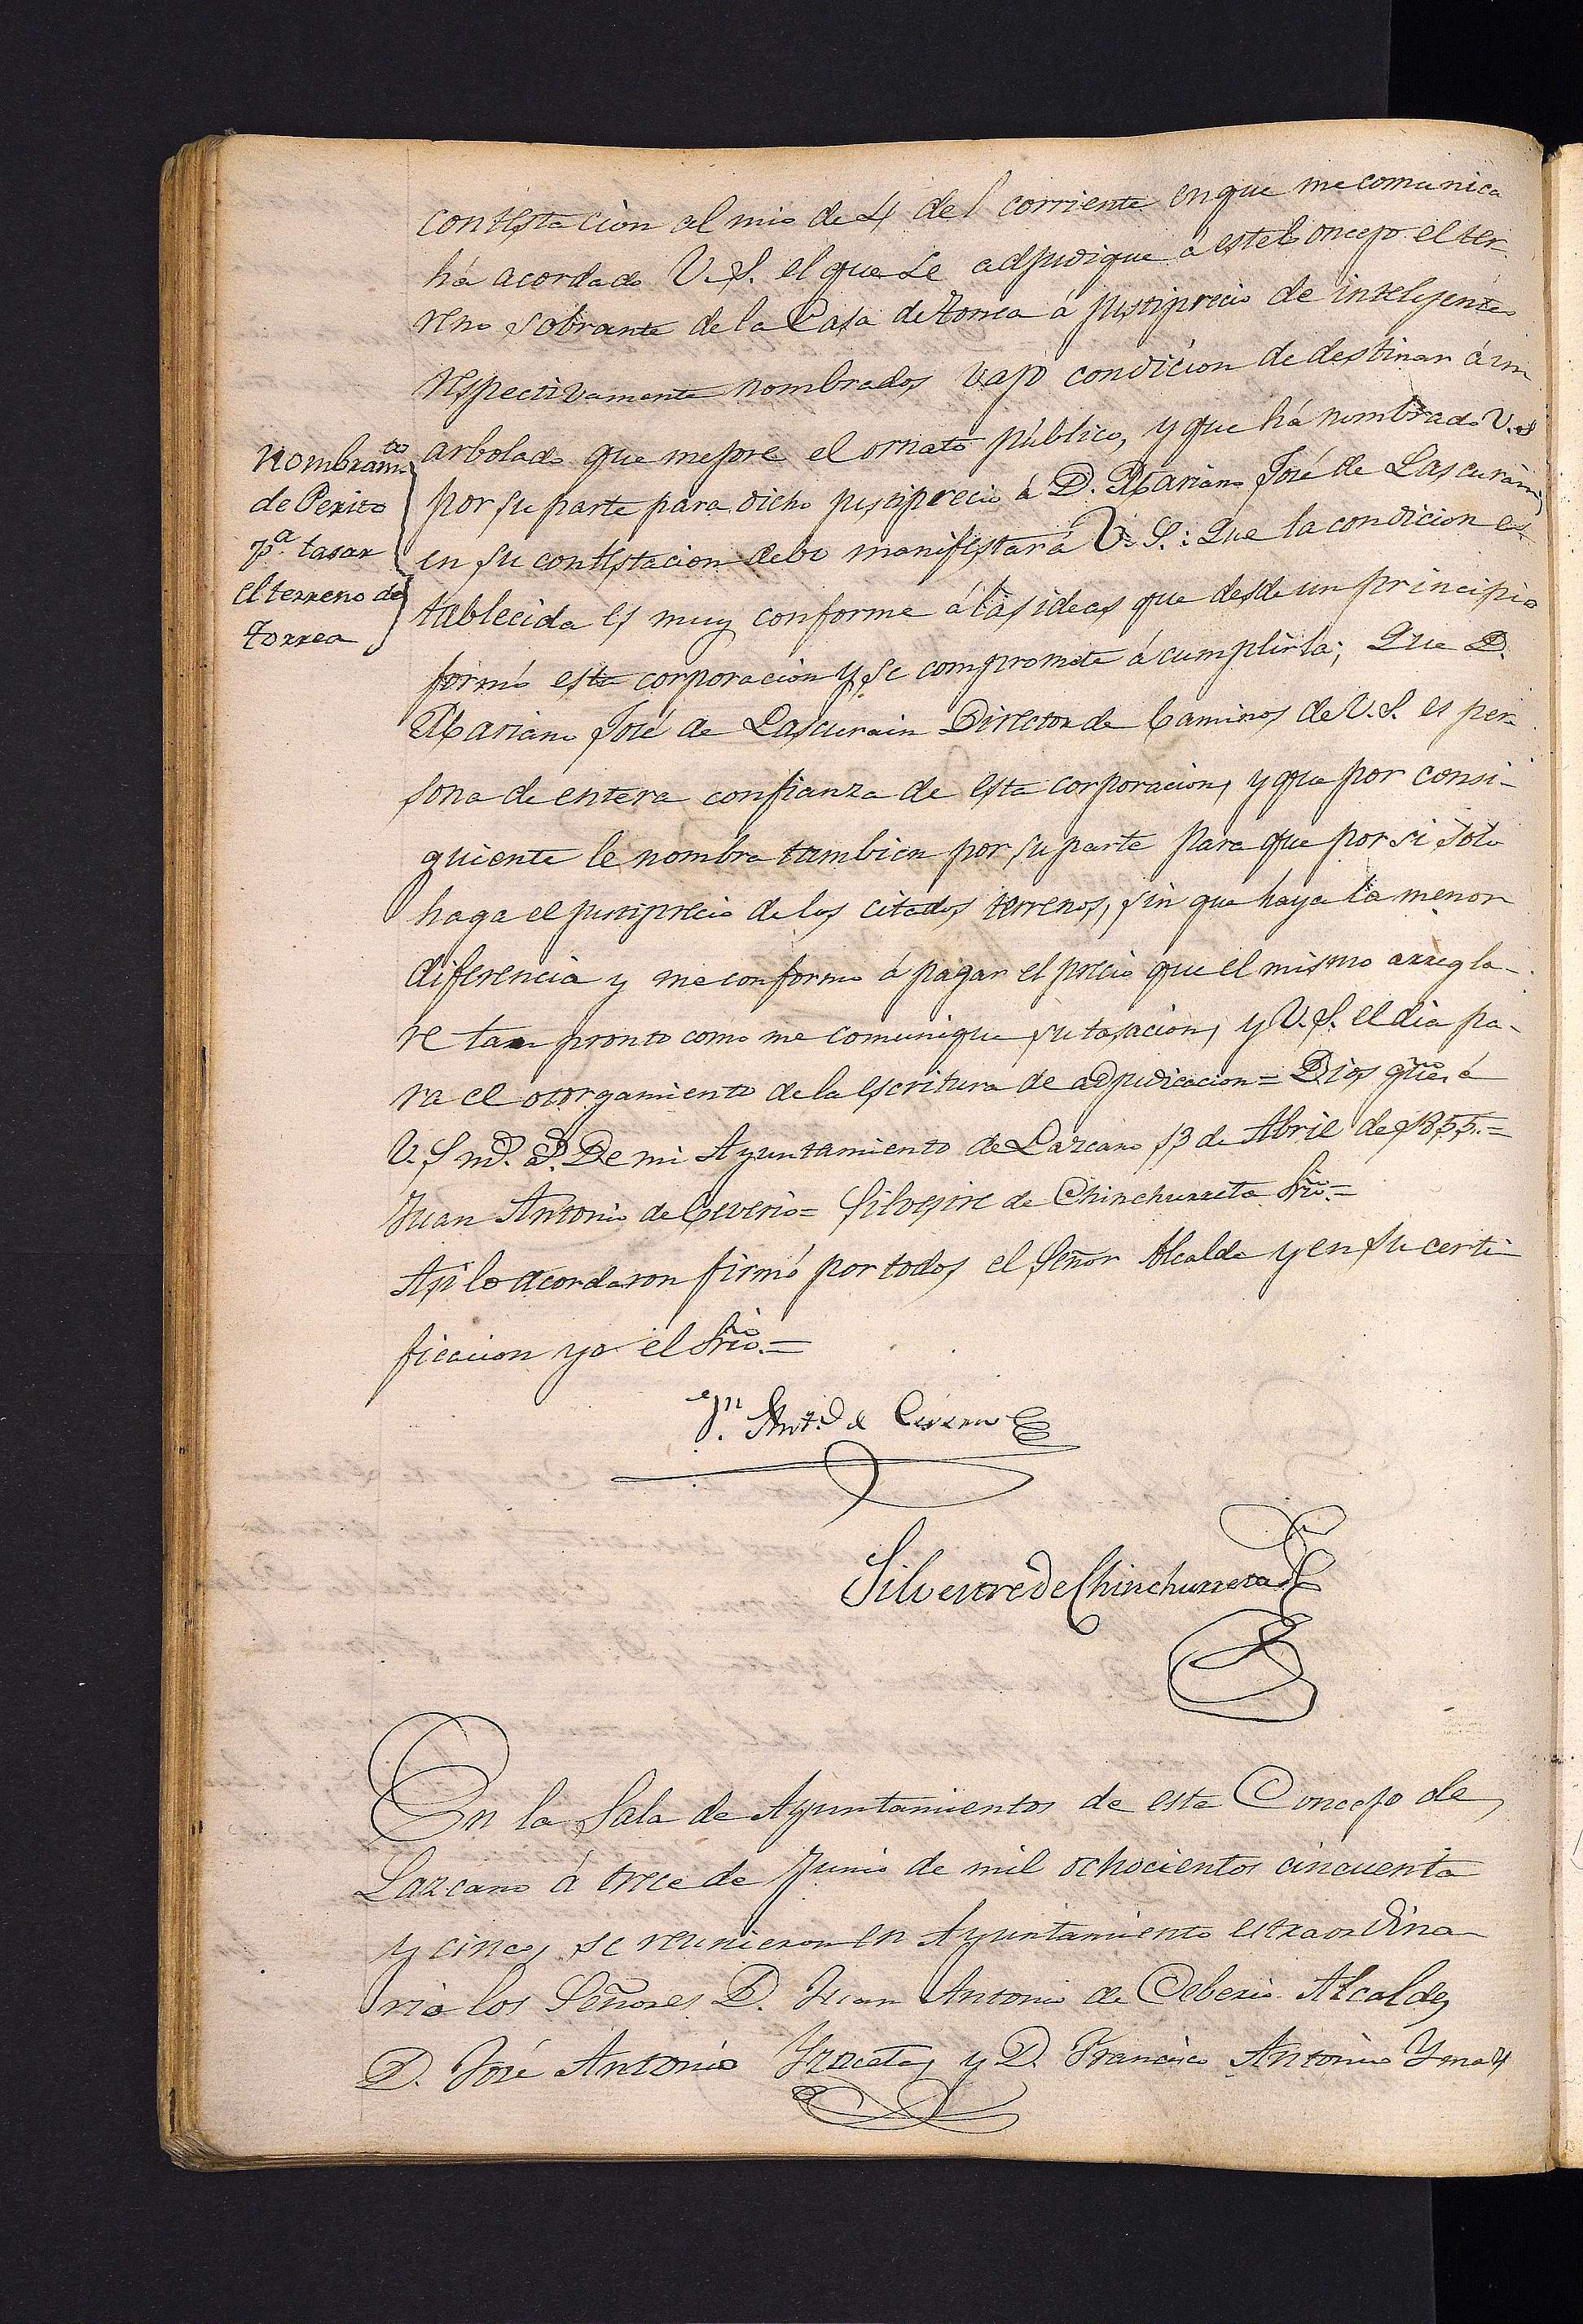 contestacion al mio de 4 del corriente en que me comunica
há acordado V.S. el que se adjudique á este Concejo el ter-
reno sobrante de la Casa de Torrea á justiprecio de intelijentes
respectivamente nombrados vajo condicion de destinar á un
arbolado que mejore el ornato público, y que há nombrado V.S
por su parte para dicho justiprecio á D. Mariano José de Lascurain,
en su contestacion debo manifestar á V.S.: Que la condicion es-
tablecida es muy conforme á las ideas que desde un principio
formó esta corporacion y se compromete á cumplirla; Que D.
Mariano José de Lascurain Director de Caminos de V.S. es per-
sona de entera confianza de esta corporacion, y que por consi-
guiente le nombra tambien por su parte para que por si solo
haga el justiprecio de los citados terrenos, sin que haya la menor
diferencia y me conformo á pagar el precio que el mismo arregla-
re tan pronto como me comunique su tasacion, y V.S. el dia pa-
ra el otorgamiento de la escritura de adjudicacion= Dios gue. á
V.S m.s a.s De mi Ayuntamiento de Lazcano 13 de Abril de 1855.=
Juan Antonio de Ceverio= Silvestre de Chinchurreta Srio.=
Asi lo acordaron firmó por todos el Señor Alcalde y en su certi-
ficacion yo el Srio.=
Nombramto
de Perito
p.a tasar
el terreno de
Torrea
Jn. Ant.o de Ceverio
Silvestre de Chinchurreta
En la Sala de Ayuntamientos de este Concejo de
Lazcano á trece de Junio de mil ochocientos cincuenta
y cinco, se reunieron en Ayuntamiento estraordina-
rio los Señores D. Juan Antonio de Ceberio Alcalde,
D. José Antonio Yrzceta, y D. Francisco Antonio Ymaz